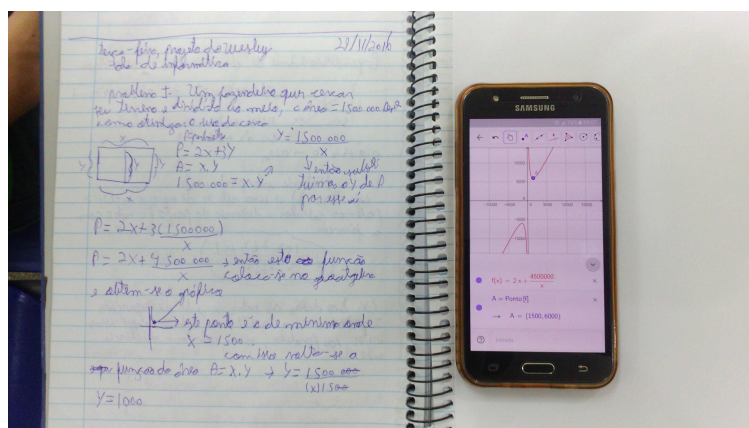 terça-feira, projeto do Wesley 29/11/2016
sala de informática
problema 1. Um fazendeiro quer cercar
seu terreno e dividi-lo ao meio, a área = 1500.000
como otimizar o uso da cerca
P = 2x+3y
A = x.y
1500.000 = x.y
Y = 1500.000
x
então substi
tuimos o y de P
por esse
x
y
x
P = 2x+3(1500000)
x
P = 2x+4 500.000
x
então esta função
coloca-se no geogebra
e obtém-se o gráfico
este ponto é o de mínimo onde
x = 1500.
com isso volta-se a
função da área A = x.y → y = 1500 000
(x)1500
Y = 1000
SAMSUNG
f(x) = 2x + 4500000
x
A = Ponto[f]
→ A = (1500, 6000)